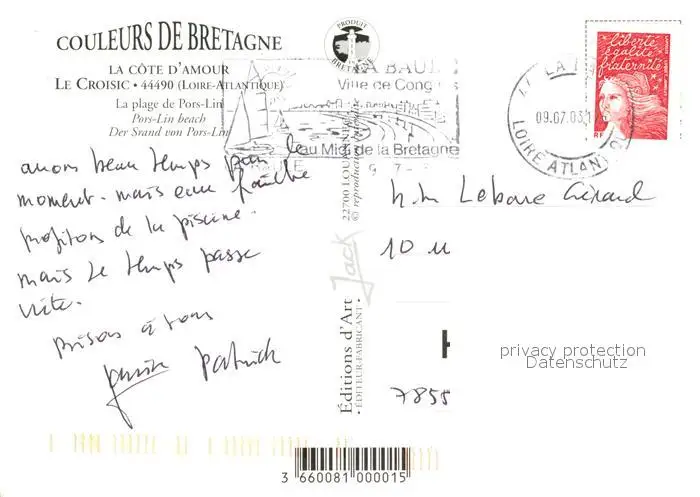 COULEURS DE BRETAGNE
LA CÔTE D'AMOUR
LE CROISIC • 44490 (LOIRE-ATLANTIQUE)
La plage de Pors-Lin
Pors-Lin beach
Der Srand von Pors-Lin
PRODUIT
BRETAGNE
LA BAULE
Ville de Congrès
au Midi de la Bretagne
44 LA
09.07.03
LOIRE ATLANTIQUE
liberté
égalité
fraternité
RF
avons beau temps pour le
moment. mais eau fraîche
profitons de la piscine.
mais le temps passe
vite.
Bisous à vous
Patrick
22700 LOUANNEC
© reproduction interdite
Jack
Editions d'Art
• ÉDITEUR-FABRICANT •
Gérard
10
7855
privacy protection
Datenschutz
3 660081 000015